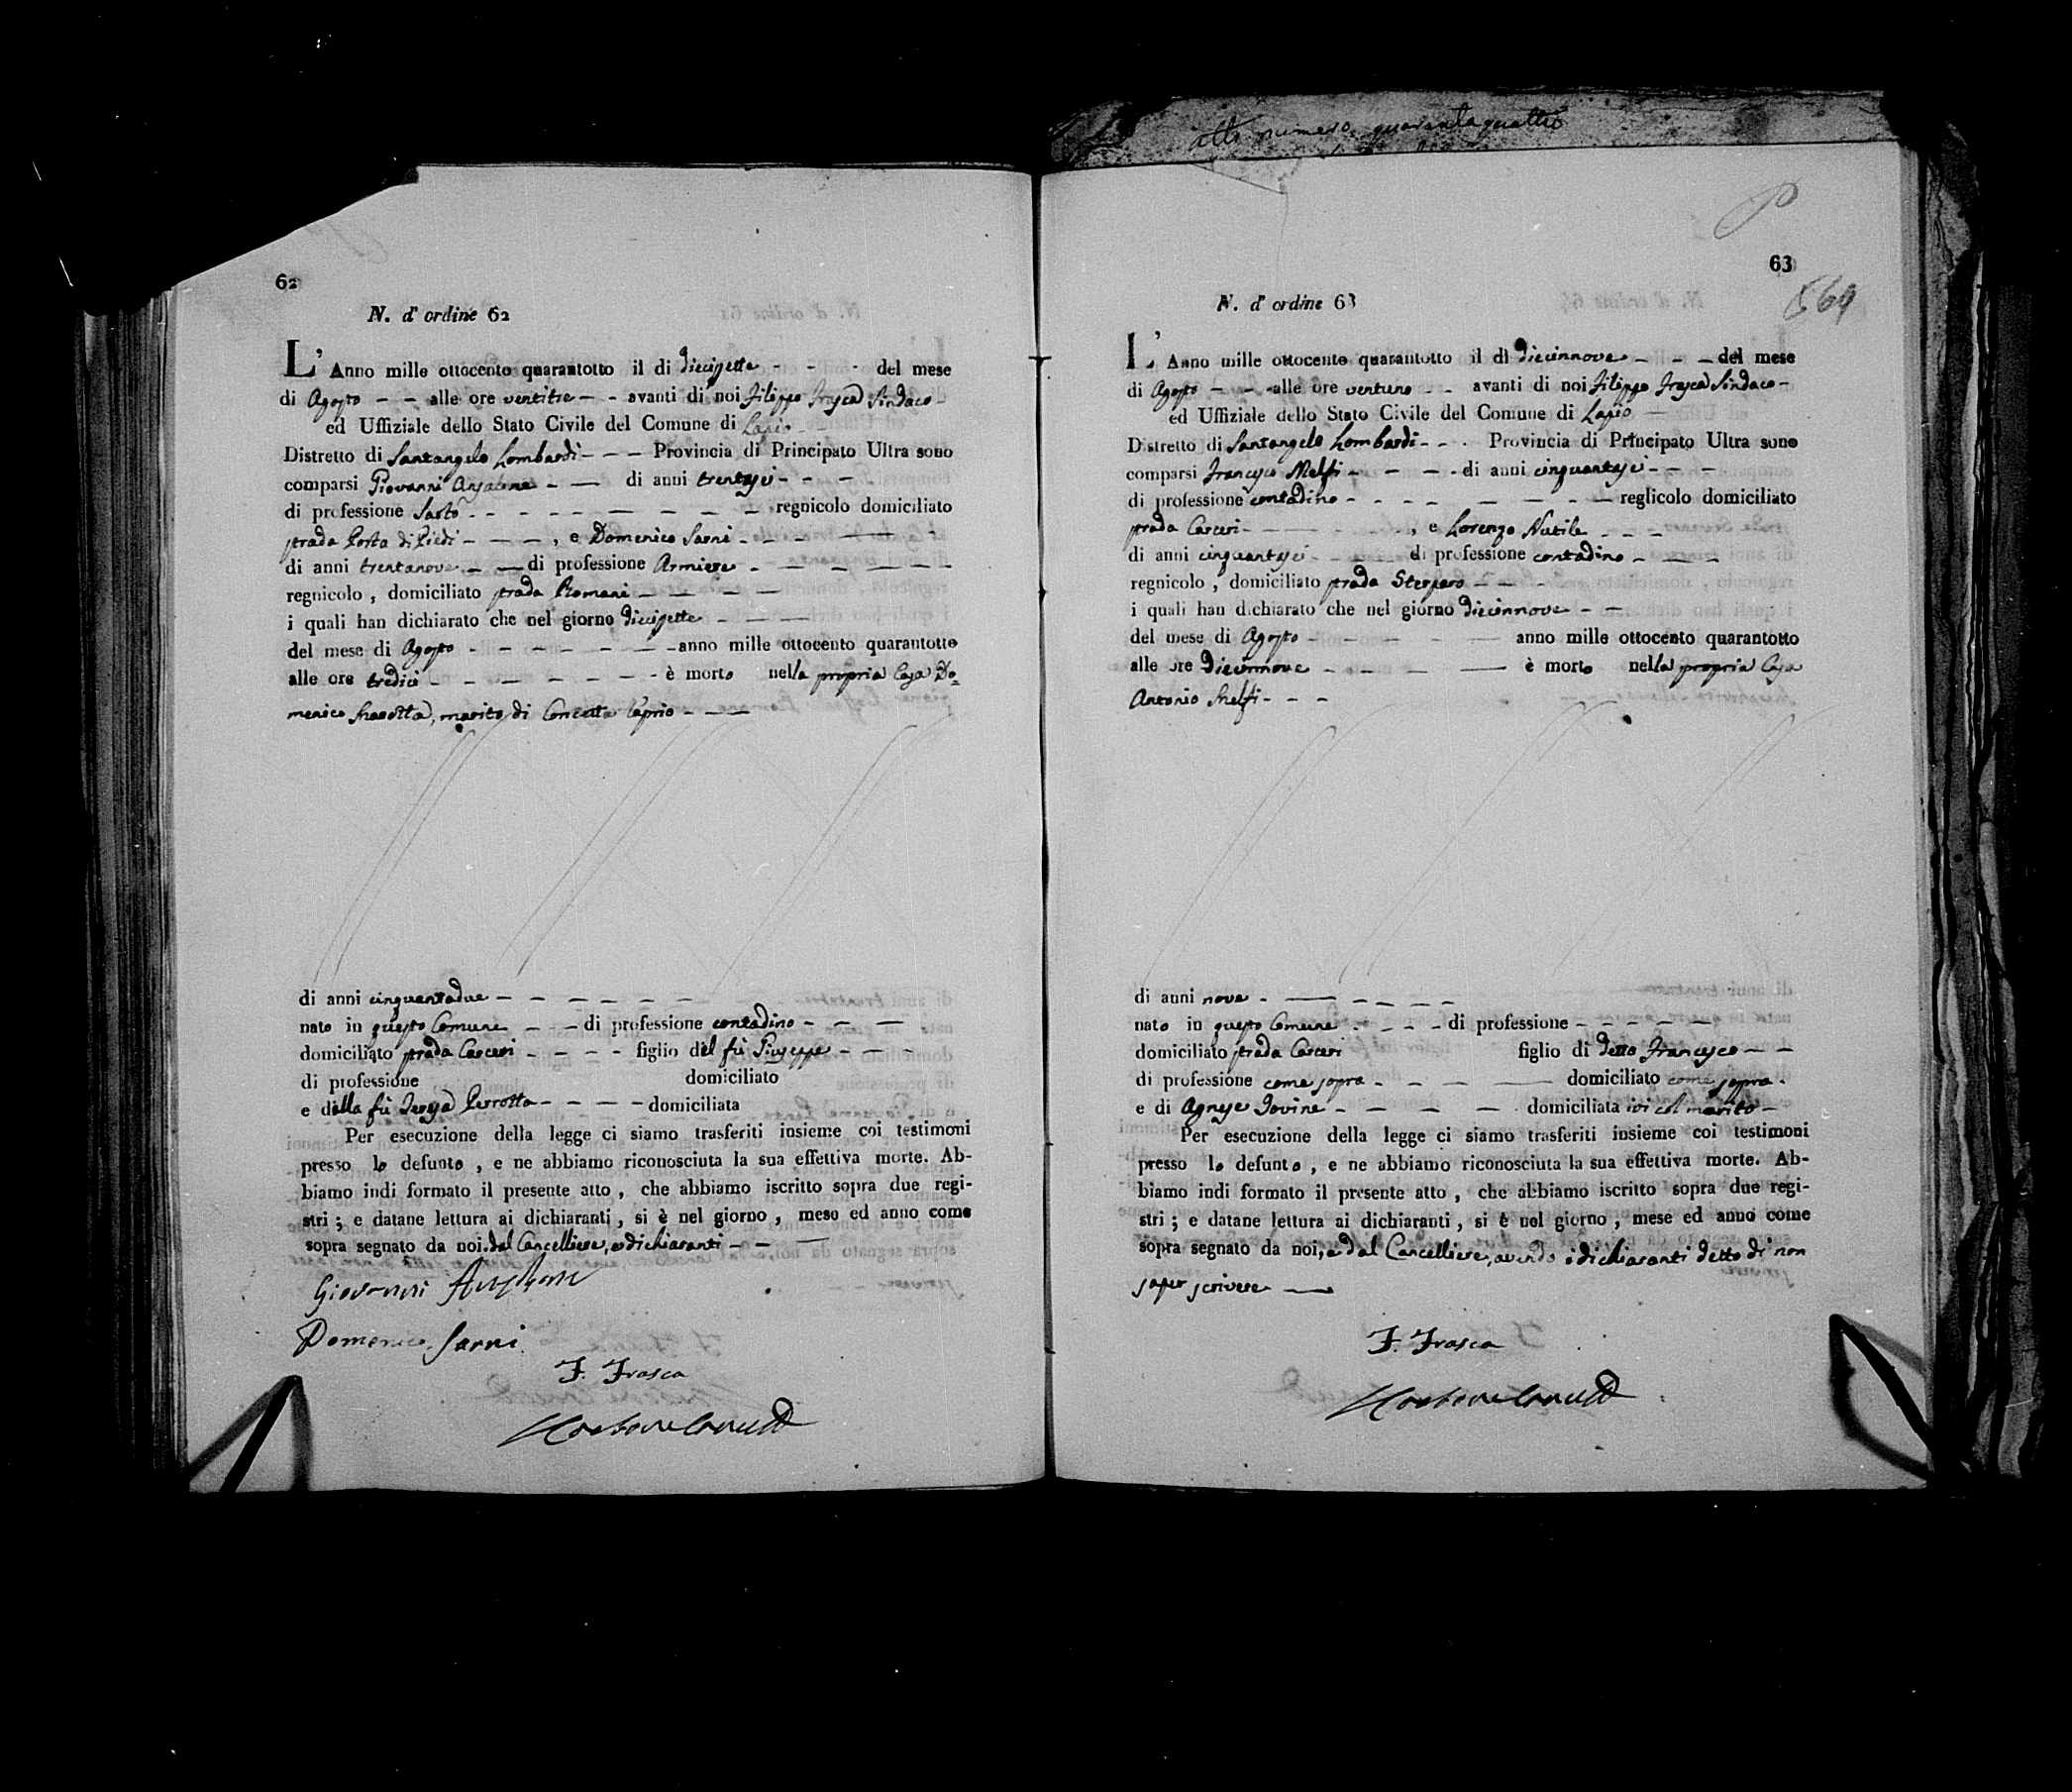 atto numero quarantaquattro
62
N. d' ordine 62
L' Anno mille ottocento quarantotto il di diecisette - - - del mese
di Agosto - - alle ore ventitre - - avanti di noi Filippo Frasca Sindaco -
ed Uffiziale dello Stato Civile del Comune di Lapio
Distretto di Santangelo Lombardi - - - Provincia di Principato Ultra sono
comparsi Giovanni Anzalone - - di anni trentasei - - -
di professione Sarto - - - - - - - - - regnicolo domiciliato
strada Porta di Piedi - - - , e Domenico Sarni - - - - -
di anni trentanove - - di professione Armiere - - - - - - -
regnicolo , domiciliato strada Romani - - - -
i quali han dichiarato che nel giorno diecisette - - -
del mese di Agosto - - - - - - - anno mille ottocento quarantotto
alle ore tredici - - - - - - - è morto nella propria Casa Do=
menico , marito di Concetta Caprio - - -
di anni cinquantadue - - - - - -
nato in questo Comune - - - di professione contadino - - -
domiciliato strada Carceri - - - - figlio del fù Giuseppe - - -
di professione domiciliato
e della fù Teresa Perrotta - - - - domiciliata
Per esecuzione della legge ci siamo trasferiti insieme coi testimoni
presso lo defunto , e ne abbiamo riconosciuta la sua effettiva morte. Ab-
biamo indi formato il presente atto , che abbiamo iscritto sopra due regi-
stri ; e datane lettura ai dichiaranti , si è nel giorno , mese ed anno come
sopra segnato da noi, dal Cancelliere, e dichiaranti - - -
Giovanni
Domenico Sarni
F. Frasca
63
564
N. d' ordine 63
L' Anno mille ottocento quarantotto il dì diecinnove - - - del mese
di Agosto - - - alle ore ventuno - - avanti di noi Filippo Frasca Sindaco -
ed Uffiziale dello Stato Civile del Comune di Lapio -
Distretto di Santangelo Lombardi - - - Provincia di Principato Ultra sono
comparsi Francesco Melfi - - - - di anni cinquantasei - - -
di professione contadino - - - - - - - - reglicolo domiciliato
strada Carceri - - - - , e Lorenzo Nutile - - -
di anni cinquantasei - - - di professione contadino - - -
regnicolo , domiciliato strada Sterparo - -
i quali han dichiarato che nel giorno diecinnove - -
del mese di Agosto - - - - - anno mille ottocento quarantotto
alle ore diecinnove - - - - - è morto nella propria Casa
Antonio Melfi - - -
di anni nove - - - - - -
nato in questo Comune - - - - di professione - - - - -
domiciliato strada Carceri figlio di detto Francesco - -
di professione come sopra - - - - domiciliato come sopra -
e di Agnese Iovine - - - - domiciliata ivi col marito -
Per esecuzione della legge ci siamo trasferiti insieme coi testimoni
presso lo defunto , e ne abbiamo riconosciuta la sua effettiva morte. Ab-
biamo indi formato il presente atto , che abbiamo iscritto sopra due regi-
stri ; e datane lettura ai dichiaranti , si è nel giorno , mese ed anno come
sopra segnato da noi, e dal Cancelliere, avendo i dichiaranti detto di non
saper scrivere -
F. Frasca